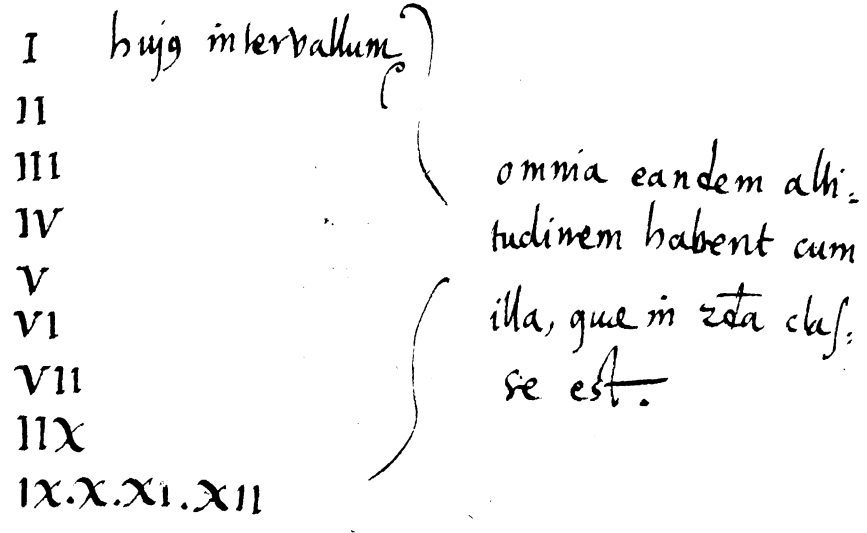 I hujꝰ intervallum
II
III
IV
V
VI
VII
IIX
IX.X.XI.XII
omnia eandem alti-
tudinem habent cum
illa, quæ in 2da clas-
se est.